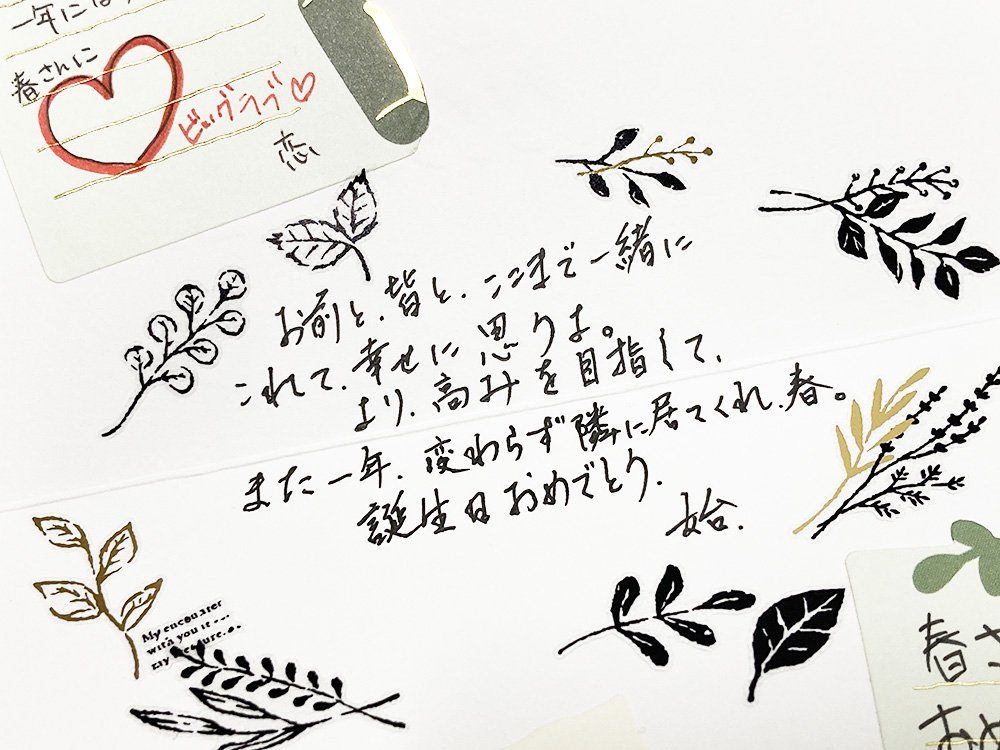 一年に
春さんに
ビッグラブ♡
恋
お前と、皆と、ここまで一緒に
これて、幸せに思うよ。
より、高みを目指して、
また一年、変わらず隣に居てくれ、春。
誕生日おめでとう。
始.
My encounter
with you is ---
my
春さ
おめ